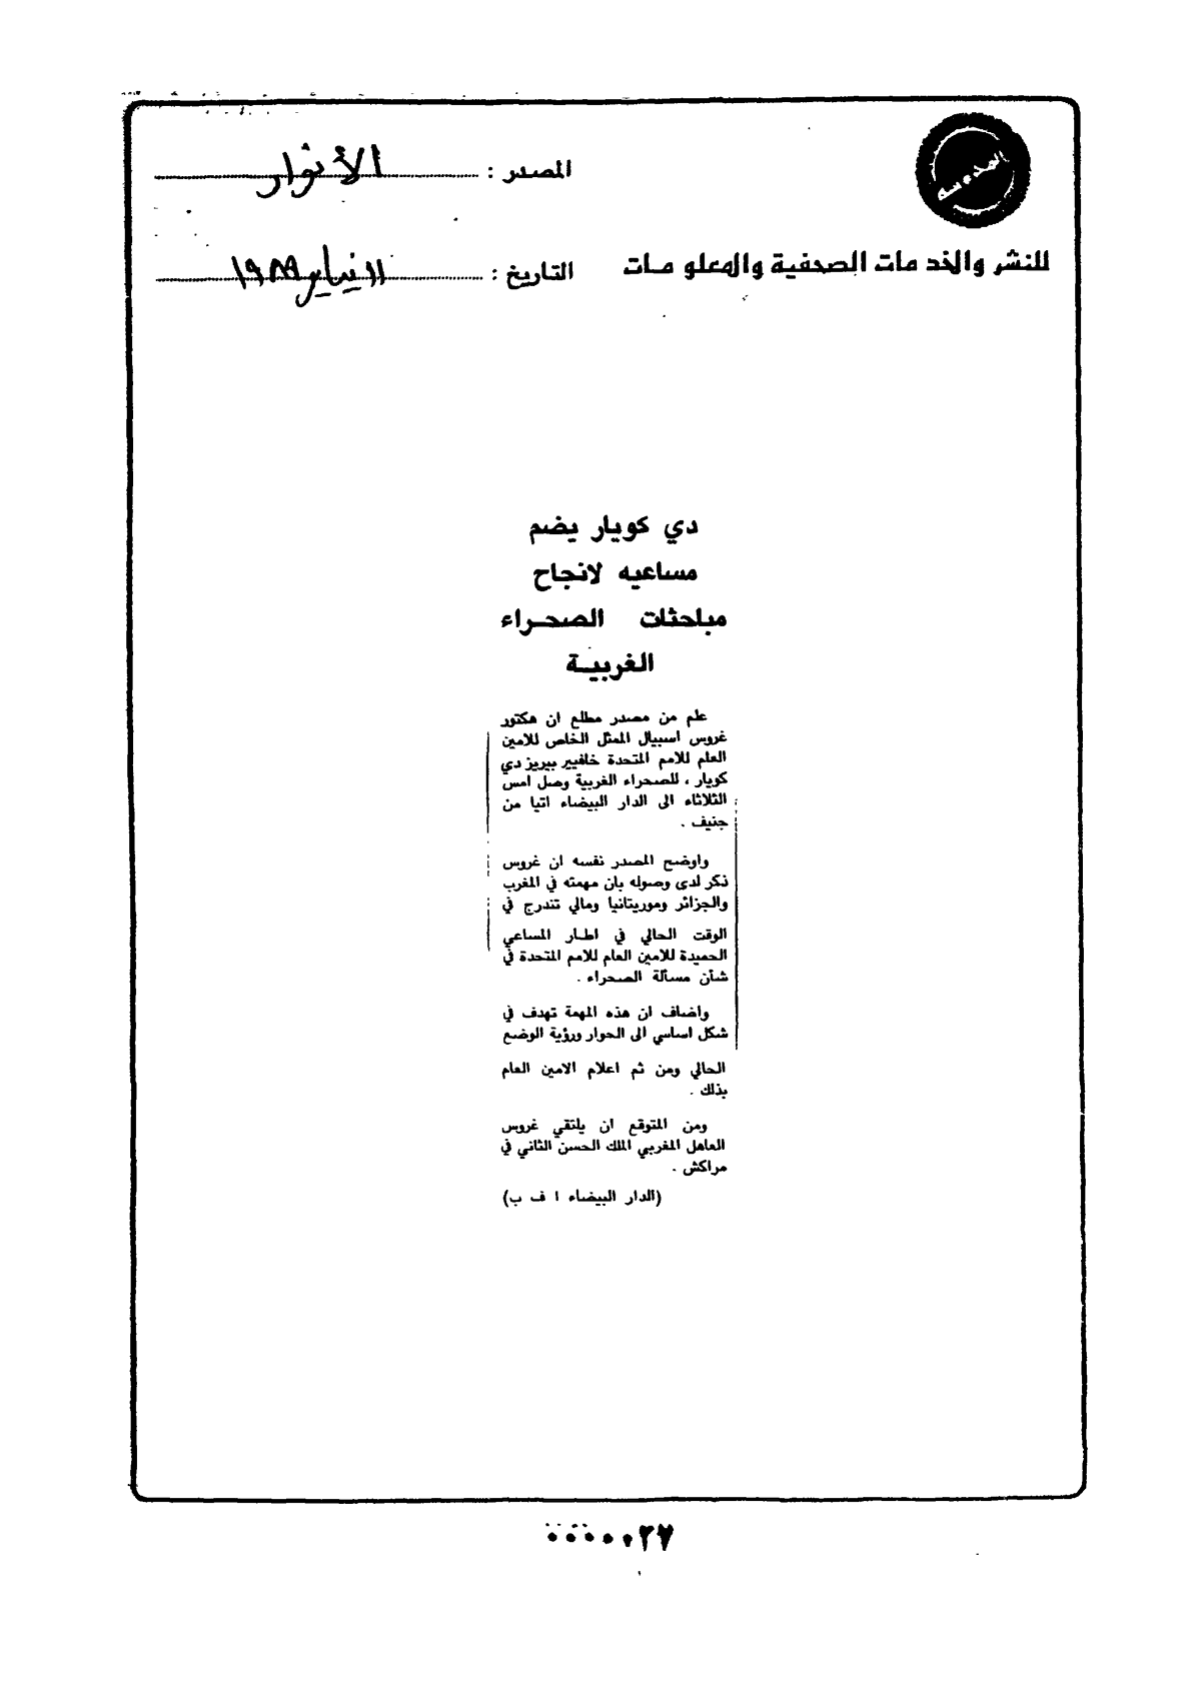 المصدر : الأنوار
للنشر والخدمات الصحفية والمعلومات
التاريخ : ١١ يناير ١٩٨٩
دي كويار يضم
مساعيه لانجاح
مباحثات الصحراء
الغربية
علم من مصدر مطلع ان هكتور
غروس اسبيال الممثل الخاص للامين
العام للامم المتحدة خافيير بيريز دي
كويار ، للصحراء الغربية وصل امس
الثلاثاء الى الدار البيضاء اتيا من
جنيف .
واوضح المصدر نفسه ان غروس
ذكر لدى وصوله بان مهمته في المغرب
والجزائر وموريتانيا ومالي تندرج في
الوقت الحالي في اطار المساعي
الحميدة للامين العام للامم المتحدة في
شأن مسألة الصحراء .
واضاف ان هذه المهمة تهدف في
شكل اساسي الى الحوار ورؤية الوضع
الحالي ومن ثم اعلام الامين العام
بذلك .
ومن المتوقع ان يلتقي غروس
العاهل المغربي الملك الحسن الثاني في
مراكش .
(الدار البيضاء ا ف ب)